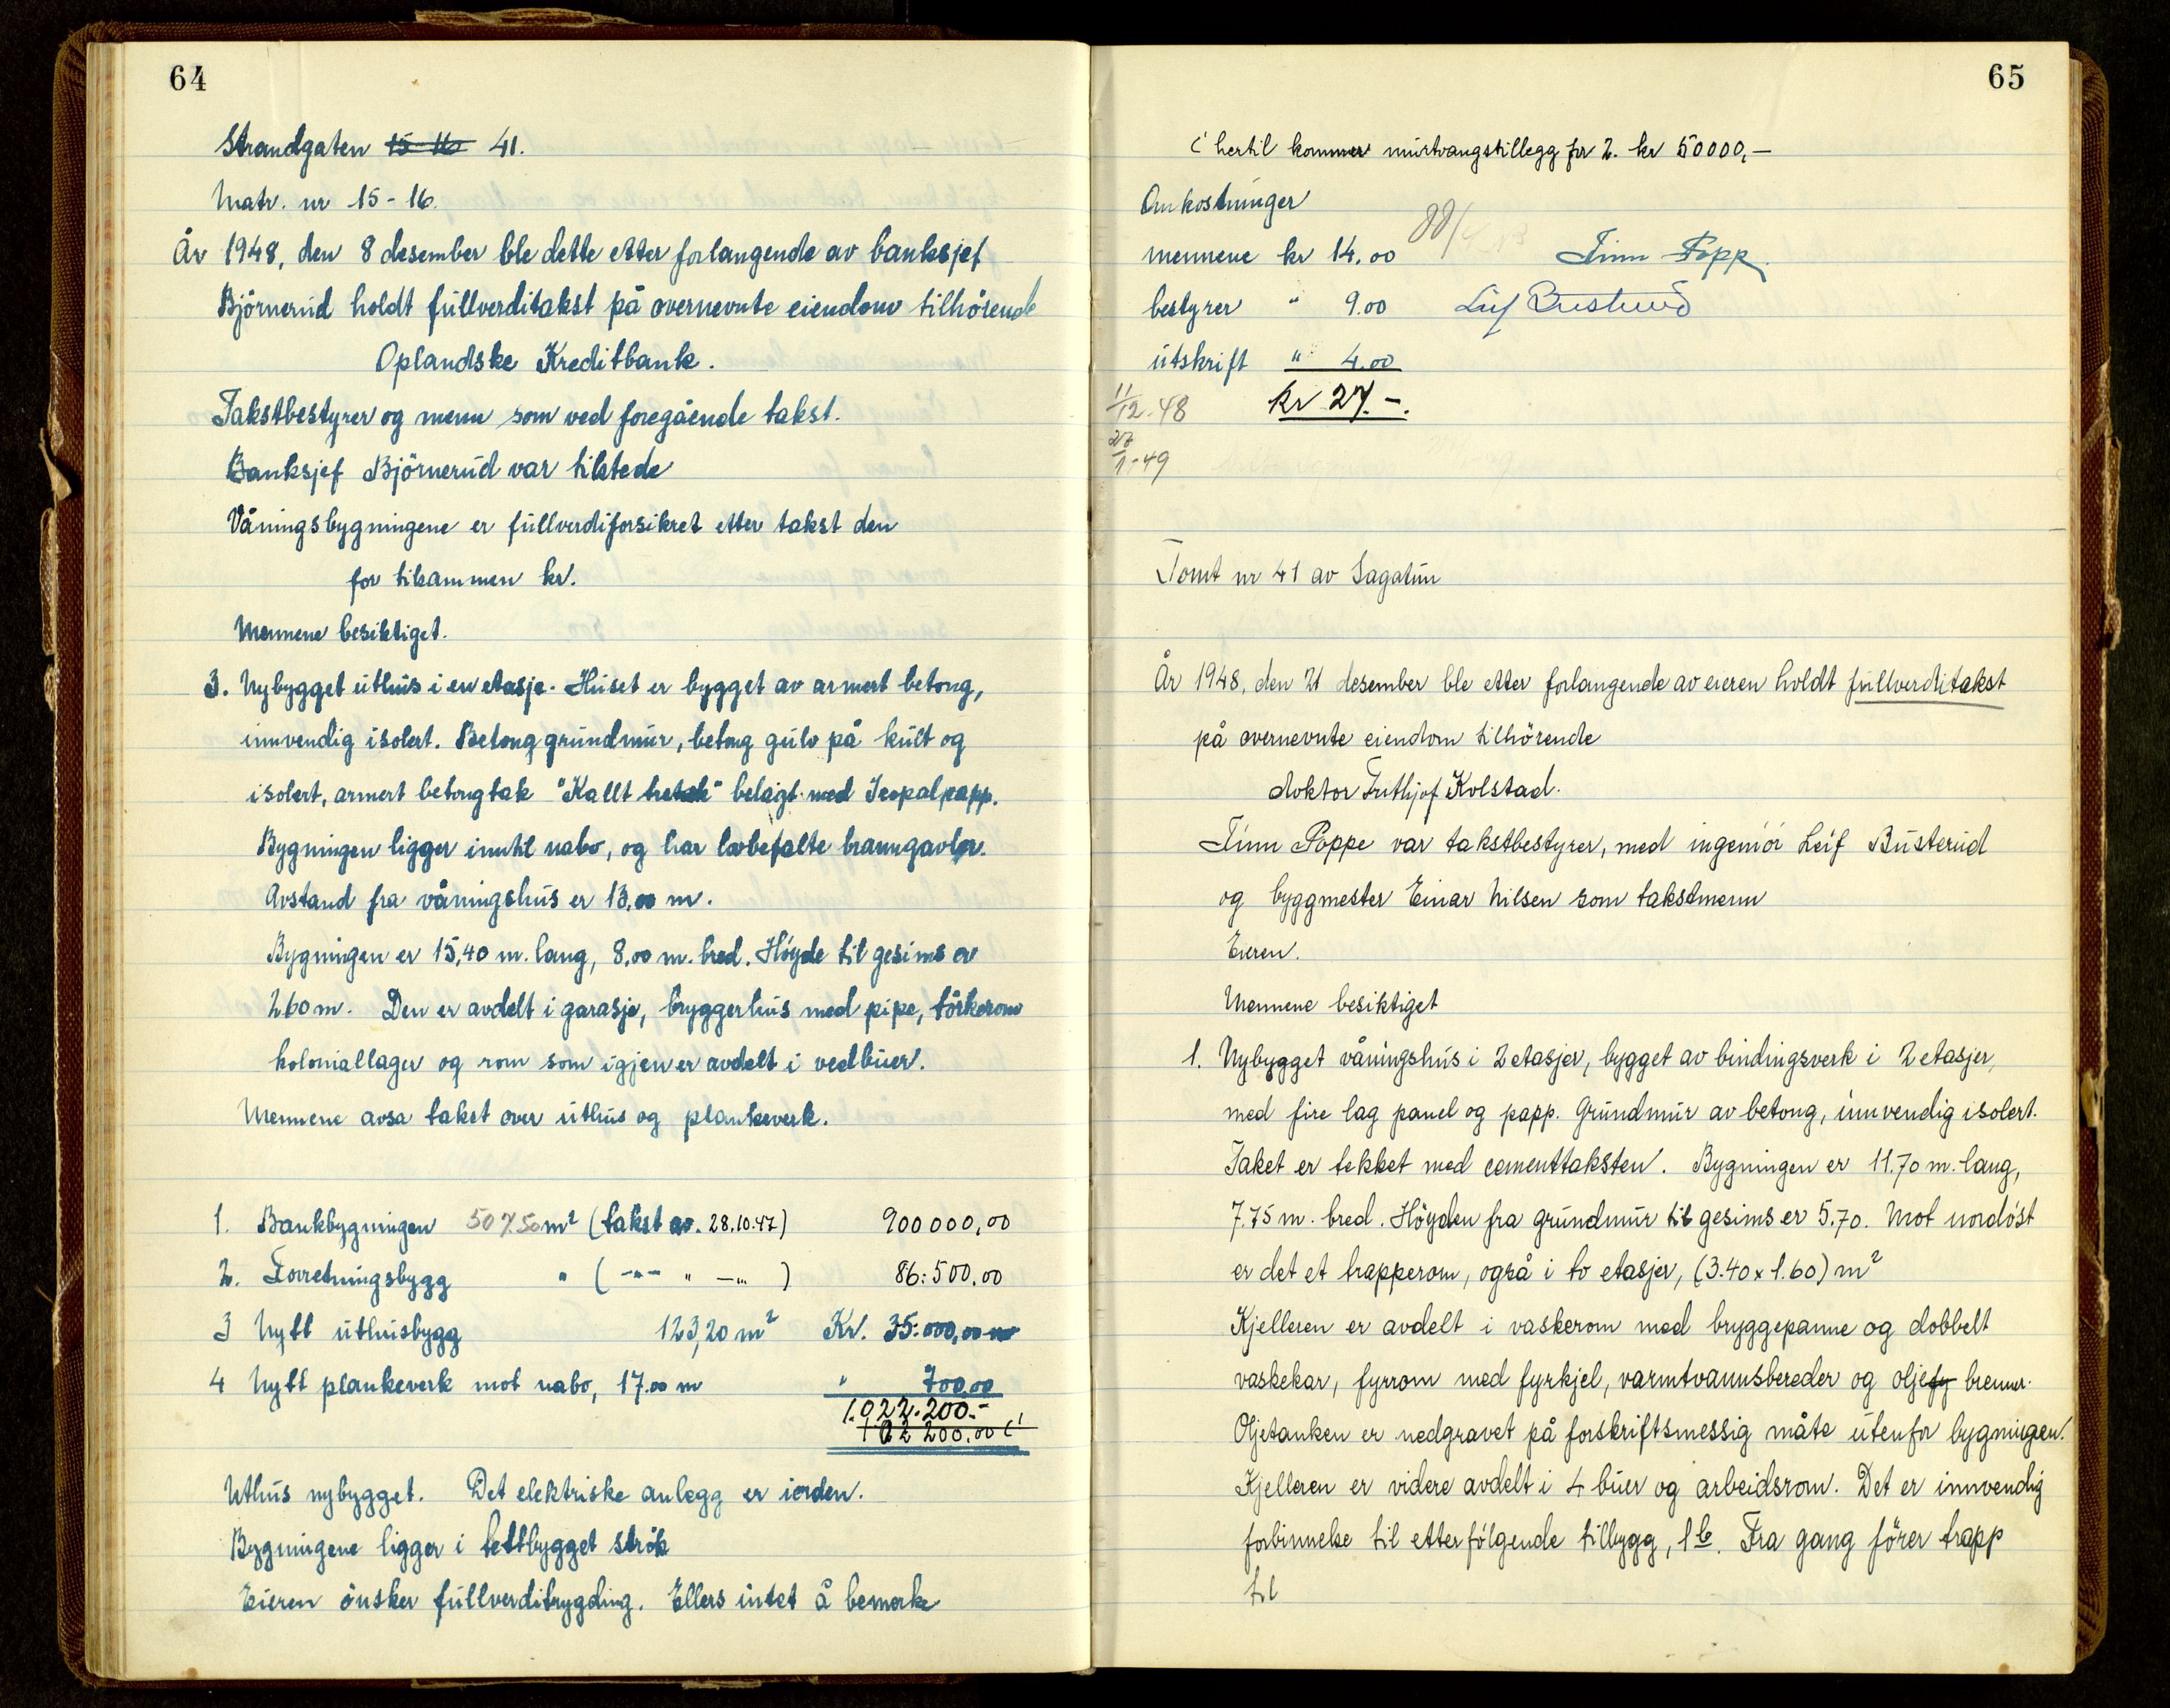 64
Strandgaten 15-16 41.
Matr. nr 15-16.
År 1948, den 8 desember ble dette etter forlangende av banksjef
Björnerud holdt fullverditakst på overnevnte eiendom tilhörende
Oplandske Kreditbank.
Takstbestyrer og menn som ved foregående takst.
Banksjef Björnerud var tilstede
Våningsbygningene er fullverdiforsikret etter takst den
for tilsammen kr.
Mennene besiktiget.
3. Nybygget uthus i en etasje. Huset er bygget av armert betong,
innvendig isolert. Betong grundmur, betong gulv på kult og
isolert, armert betongtak "Kallt tretak" belagt med Icopalpapp.
Bygningen ligger inntil nabo, og har lovbefalte branngavler.
Avstand fra våningshus er 13,00 m.
Bygningen er 15,40 m. lang, 8,00 m. bred. Höyde til gesims er
2.60 m. Den er avdelt i garasje, bryggerhus med pipe, törkerom
koloniallager og rom som igjen er avdelt i vedbuer.
Mennene avsa takst over uthus og plankeverk.
1. Bankbygningen 507.50 m² (takst av. 28.10.47) 900000,00
2. Forretningsbygg " ( -"- " -"- ) 86:500,00
3 Nytt uthusbygg 123,20 m² Kr. 35:000,00
4 Nytt plankeverk mot nabo, 17.00 m " 700,00
1.022.200.-
Uthus nybygget. Det elektriske anlegg er iorden.
Bygningene ligger i tettbygget strök
Eieren önsker fullverditrygding. Ellers intet å bemerke
65
hertil kommer murtvangstillegg for 2. kr 50000,-
Omkostninger
mennene kr 14,00 Finn Popp
bestyrer " 9.00 Leif Busterud
utskrift " 4.00
11/12.48 kr 27.-.
27/1-49
Tomt nr 41 av Sagatun
År 1948, den 21 desember ble etter forlangende av eieren holdt fullverditakst
på overnevnte eiendom tilhörende
doktor Frithjof Kolstad.
Finn Poppe var takstbestyrer, med ingeniör Leif Busterud
og byggmester Einar Nilsen som takstmenn
Eieren.
Mennene besiktiget
1. Nybygget våningshus i 2 etasjer, bygget av bindingsverk i 2 etasjer,
med fire lag panel og papp. Grundmur av betong, innvendig isolert.
Taket er tekket med cementtaksten. Bygningen er 11.70 m. lang,
7.75 m. bred. Höyden fra grundmur til gesims er 5.70. Mot nordöst
er det et trapperom, også i to etasjer, (3.40 x 1.60) m²
Kjelleren er avdelt i vaskerom med bryggepanne og dobbelt
vaskekar, fyrrom med fyrkjel, varmtvannsbereder og oljefy brenner.
Oljetanken er nedgravet på forskriftsmessig måte utenfor bygningen.
Kjelleren er videre avdelt i 4 buer og arbeidsrom. Det er innvendig
forbinnelse til etterfölgende tilbygg, 1b. Fra gang förer trapp
til